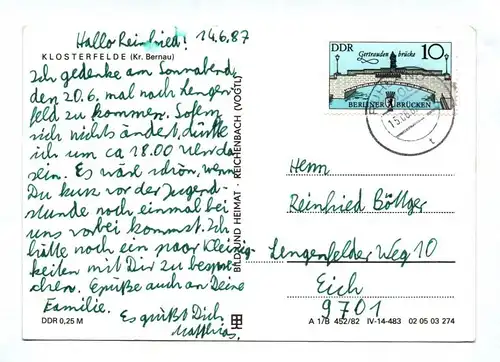 Hallo Reinfried! 14.6.87
KLOSTERFELDE (Kr. Bernau)
Ich gedenke am Sonnabend,
den 20.6. mal nach Lengen-
feld zu kommen. Sofern
sich nichts ändert, dürfte
ich um ca 18.00 Uhr da
sein. Es wäre schön, wenn
Du kurz vor der Jugend-
stunde noch einmal bei
uns vorbei kommst. Ich
hätte noch ein paar Kleinig-
keiten mit Dir zu bespre-
chen. Grüße auch an Deine
Familie.
Es grüßt Dich
Matthias.
DDR 0,25 M
BILD UND HEIMAT · REICHENBACH (VOGTL)
DDR Gertraudenbrücke 10
BERLINER BRÜCKEN
Herrn
Reinfried Böttger
Lengenfelder Weg 10
Eich
9701
A 1/B 452/82 IV-14-483 02 05 03 274